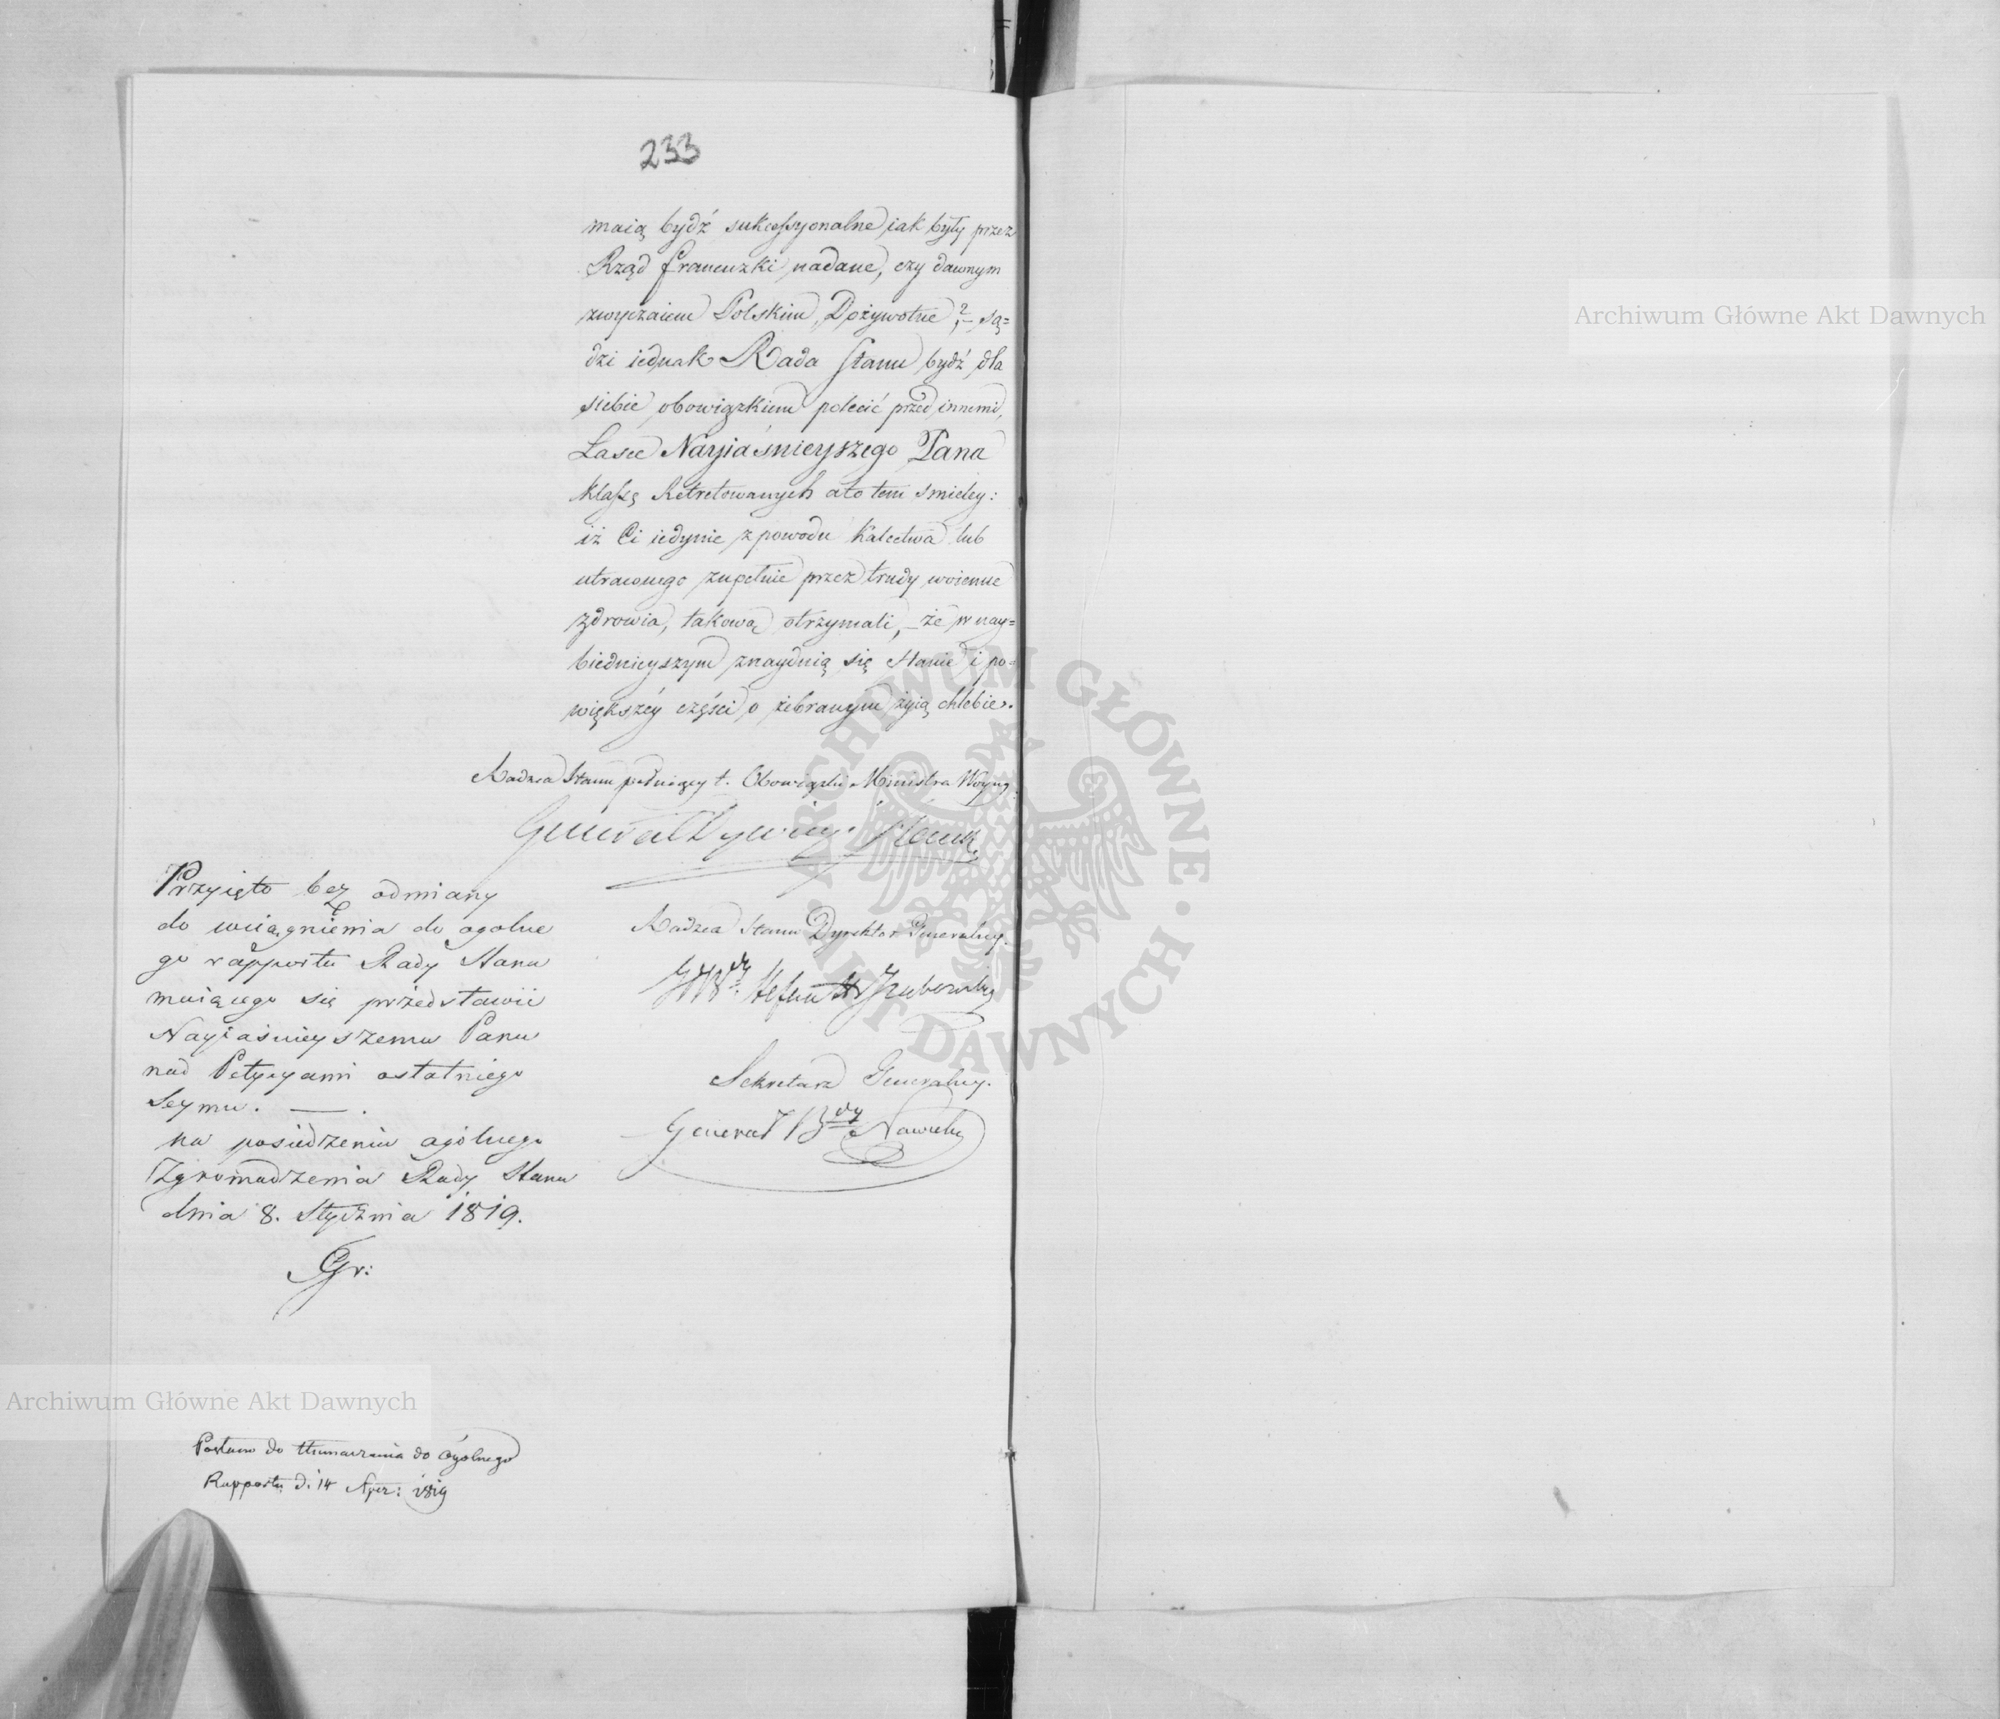 233
maią bydź sukcessyonalne iak były przez
Rząd francuzki nadane, czy dawnym
zwyczaiem Polskim, Dożywotne?, – są=
dzi iednak Rada Stanu bydź dla
siebie obowiązkiem polecić przed innemi,
Łasce Nayiaśnieyszego Pana
klassę Retretowanych a to tem smieley:
iż Ci iedynie z powodu Kalectwa lub
utraconego zupełnie przez trudy woienne
zdrowia, takową otrzymali, – że w nay=
biednieyszym znayduią się Stanie i po=
większéy części o żebranym żyią chlebie.
Radzca Stanu pełniący t. Obowiązki Ministra Woyny
Generał Dywizyi
Radzca Stanu Dyrektor Generalny.
Grabowski
Sekretarz Generalny.
Generał Bdy Nowicki
Przyięto bez odmiany
do wciągnienia do ogolne
go rapportu Rady Stanu
maiącego się przedstawić
Nayiaśnieyszemu Panu
nad Petycyami ostatniego
Seymu. — .
na posiedzeniu ogólnego
Zgromadzenia Rady Stanu
dnia 8. Stycznia 1819.
Gr:
do tłumaczenia do Ogolnego
Rapportu d. 14 1819
Archiwum Główne Akt Dawnych
Archiwum Główne Akt Dawnych
ARCHIWUM GŁÓWNE • AKT DAWNYCH •